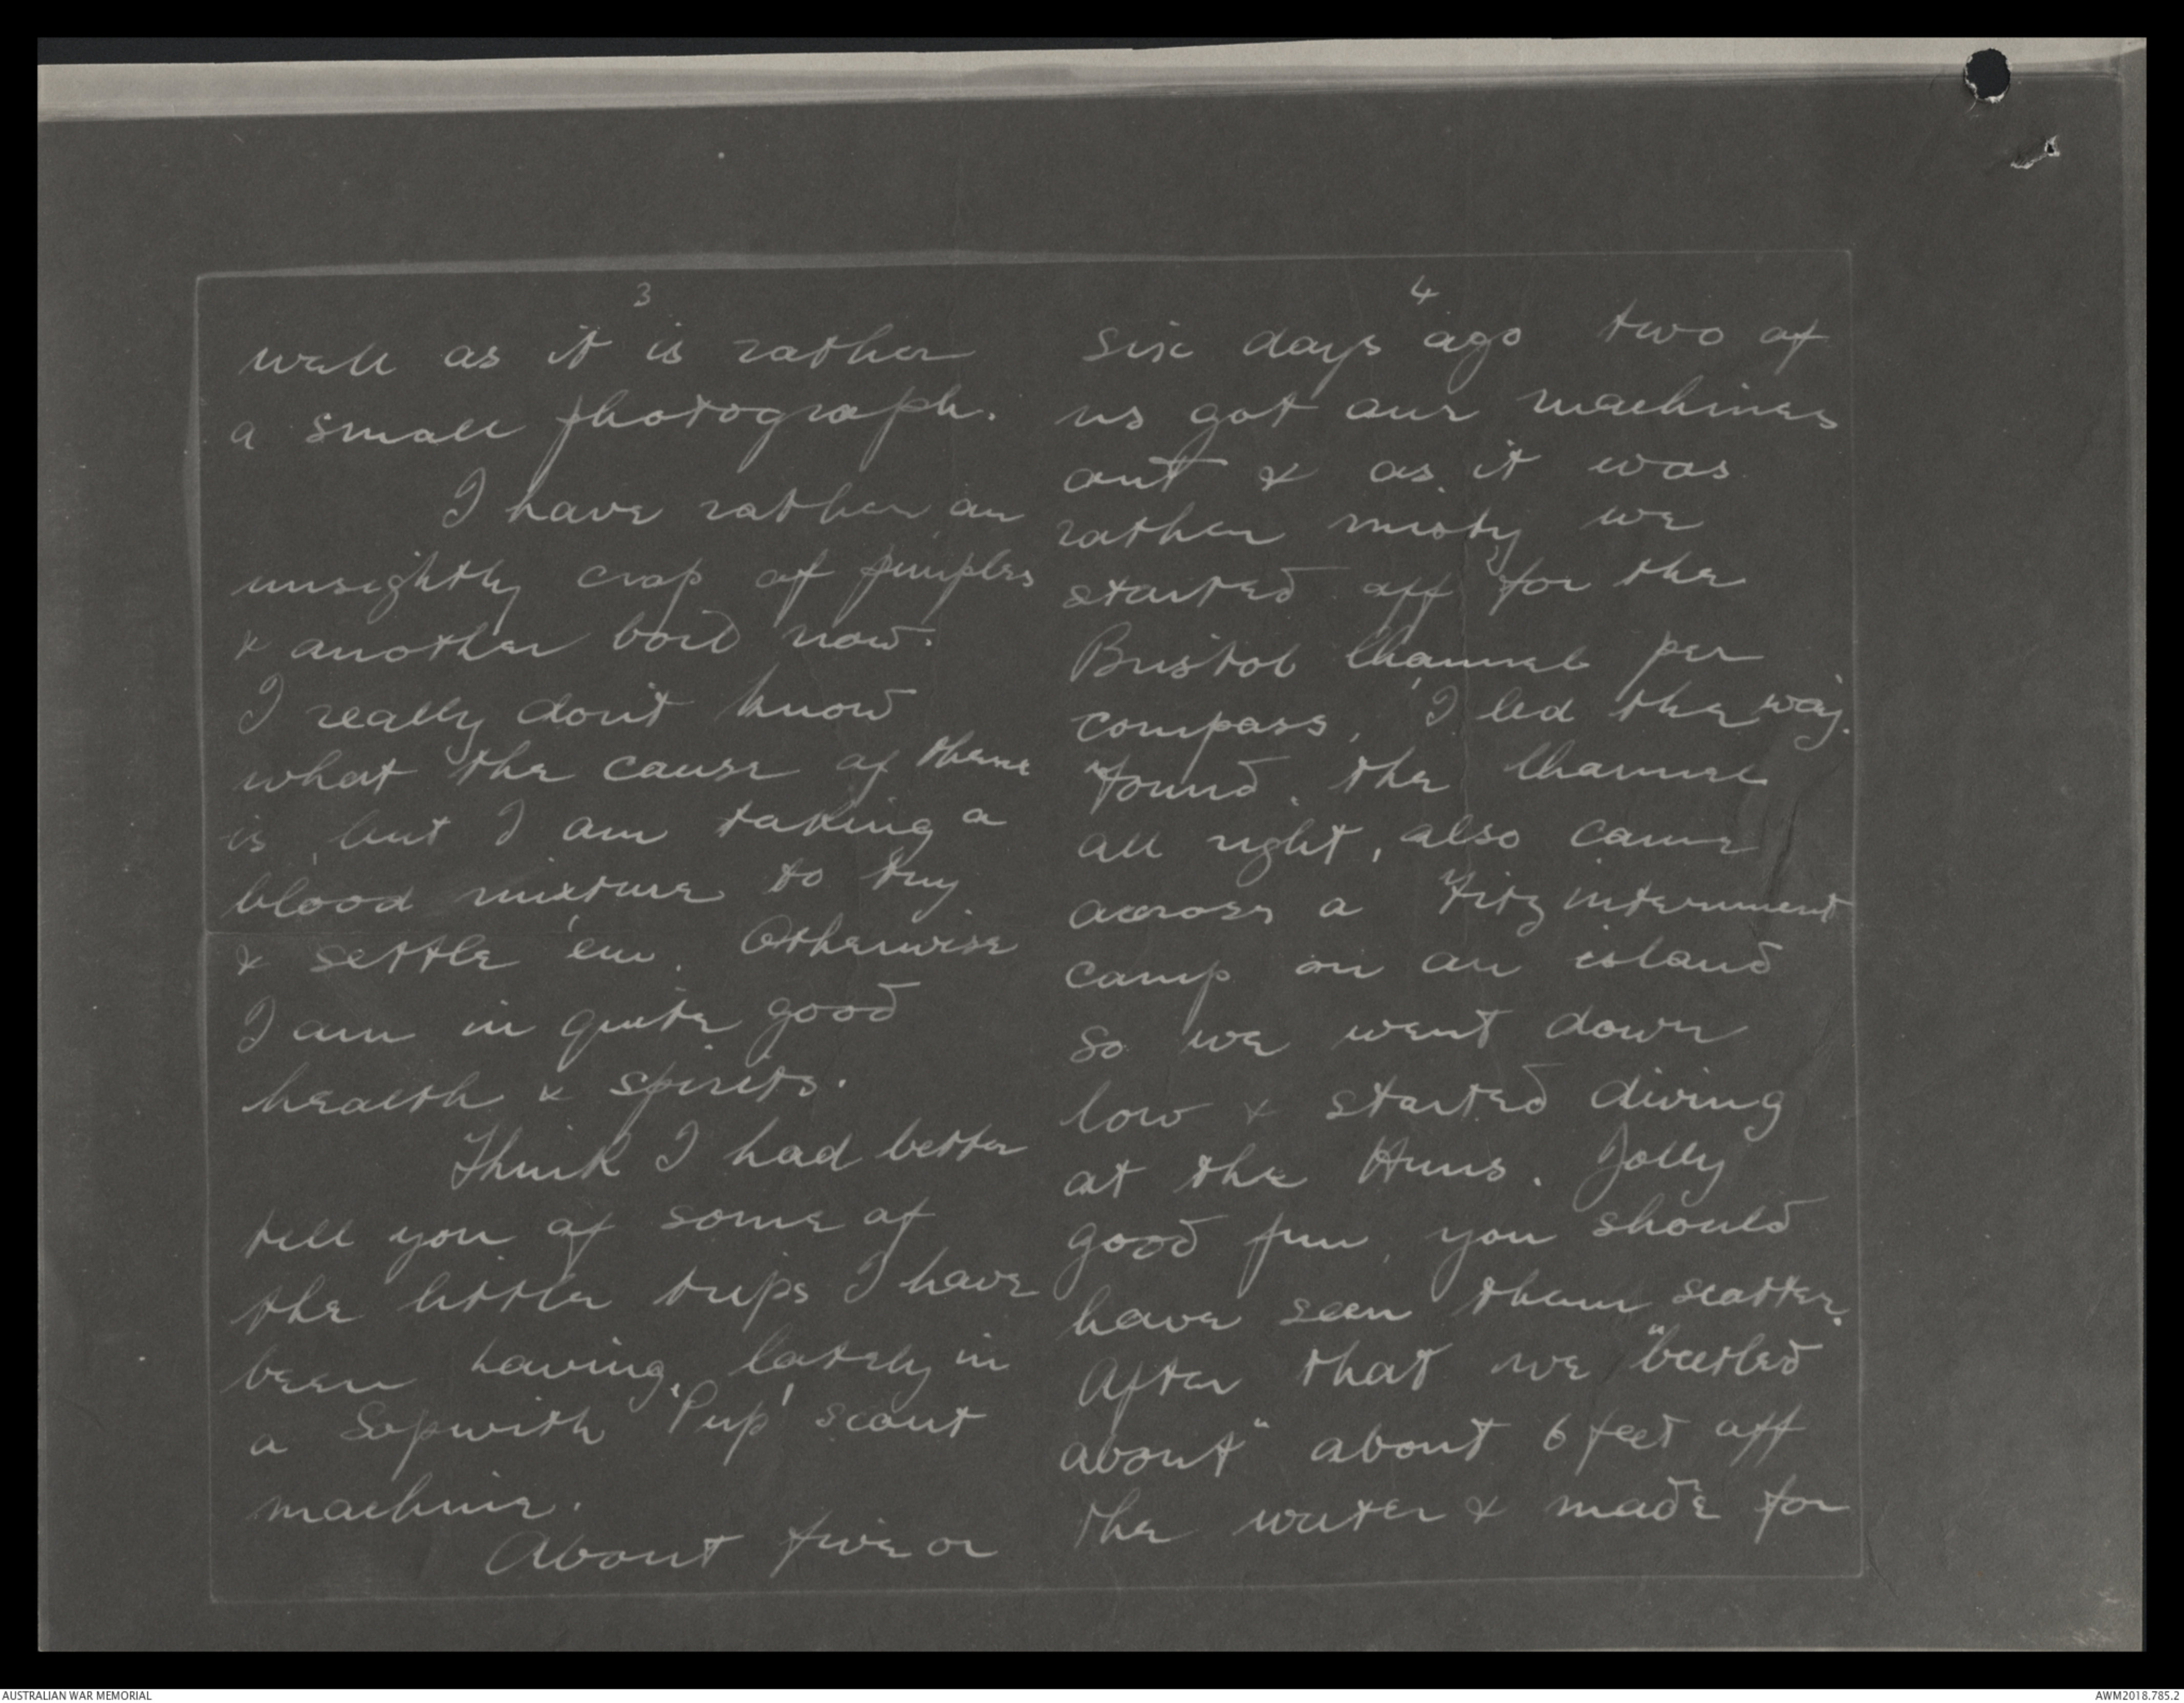 3
well as it is rather
a small photograph.
I have rather an
unsightly crop of pimples
& another boil now.
I really don't know
what the cause of them
is, but I am taking a
blood mixture to try
& settle 'em. Otherwise
I am in quite good
health & spirits.
Think I had better
tell you of some of
the little trips I have
been having, lately in
a Sopwith 'Pup' scout
machine.
About five or
4
six days ago two of
us got our machines
out & as it was
rather misty we
started off for the
Bristol Channel per
compass, I led the way.
Found the Channel
all right, also came
across a Fitz internment
camp on an island
so we went down
low & started diving
at the Huns. Jolly
good fun, you should
have seen them scatter.
After that we "beetled
about" about 6 feet off
the water & made for
AUSTRALIAN WAR MEMORIAL
AWM2018.785.2